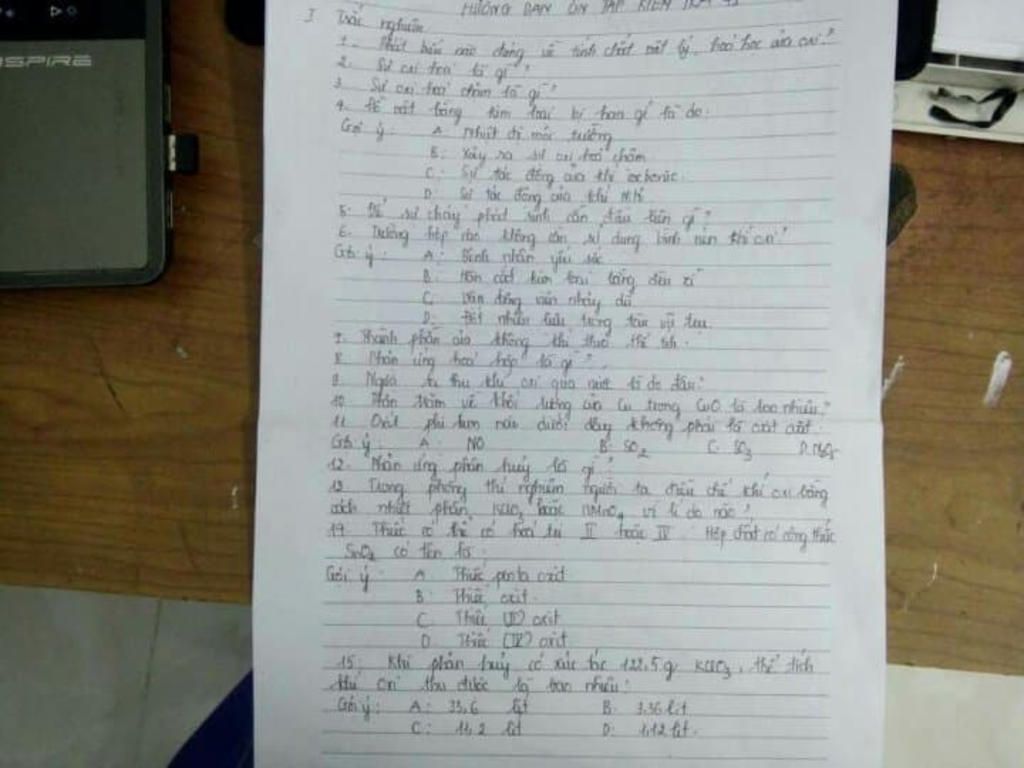 SPIRE
HƯỚNG DẪN ÔN TẬP KIỂM TRA
I Trắc nghiệm
1. Phát biểu nào đúng về tính chất vật lý, hoá học của oxi?
2. Sự oxi hoá là gì?
3. Sự oxi hoá chậm là gì?
4. Đồ vật bằng kim loại bị han gỉ là do:
Gợi ý: A. Nhiệt độ môi trường
B: Xảy ra sự oxi hoá chậm
C: Sự tác động của khí cacbonic.
D: Sự tác động của khí Nitơ
5. Để sự cháy phát sinh cần điều kiện gì?
6. Trường hợp nào không cần sử dụng bình nén khí oxi?
Gợi ý: A: Bệnh nhân yếu sức
B: Hàn cắt kim loại bằng đèn xì
C: Vận động viên nhảy dù
D: Đốt nhiên liệu trong tàu vũ trụ.
7. Thành phần của không khí theo thể tích.
8. Phản ứng hoá hợp là gì?
9. Người ta thu khí oxi qua nước là do đâu?
10. Phần trăm về khối lượng của Cu trong CuO là bao nhiêu?
11. Oxit phi kim nào dưới đây không phải là oxit axit.
Gợi ý: A: NO B: SO2 C: SO3 D.
12. Phản ứng phân huỷ là gì?
13. Trong phòng thí nghiệm người ta điều chế khí oxi bằng
cách nhiệt phân KClO3 hoặc KMnO4 vì lí do nào?
14. Thiếc có thể có hoá trị II hoặc IV. Hợp chất có công thức
SnO2 có tên là:
Gợi ý: A Thiếc penta oxit
B: Thiếc oxit.
C. Thiếc (II) oxit
D. Thiếc (IV) oxit.
15. Khi phân huỷ có xúc tác 122,5g KClO3, thể tích
khí oxi thu được là bao nhiêu:
Gợi ý: A: 33,6 lít B: 3,36 lít
C: 11,2 lít D: 1,12 lít.